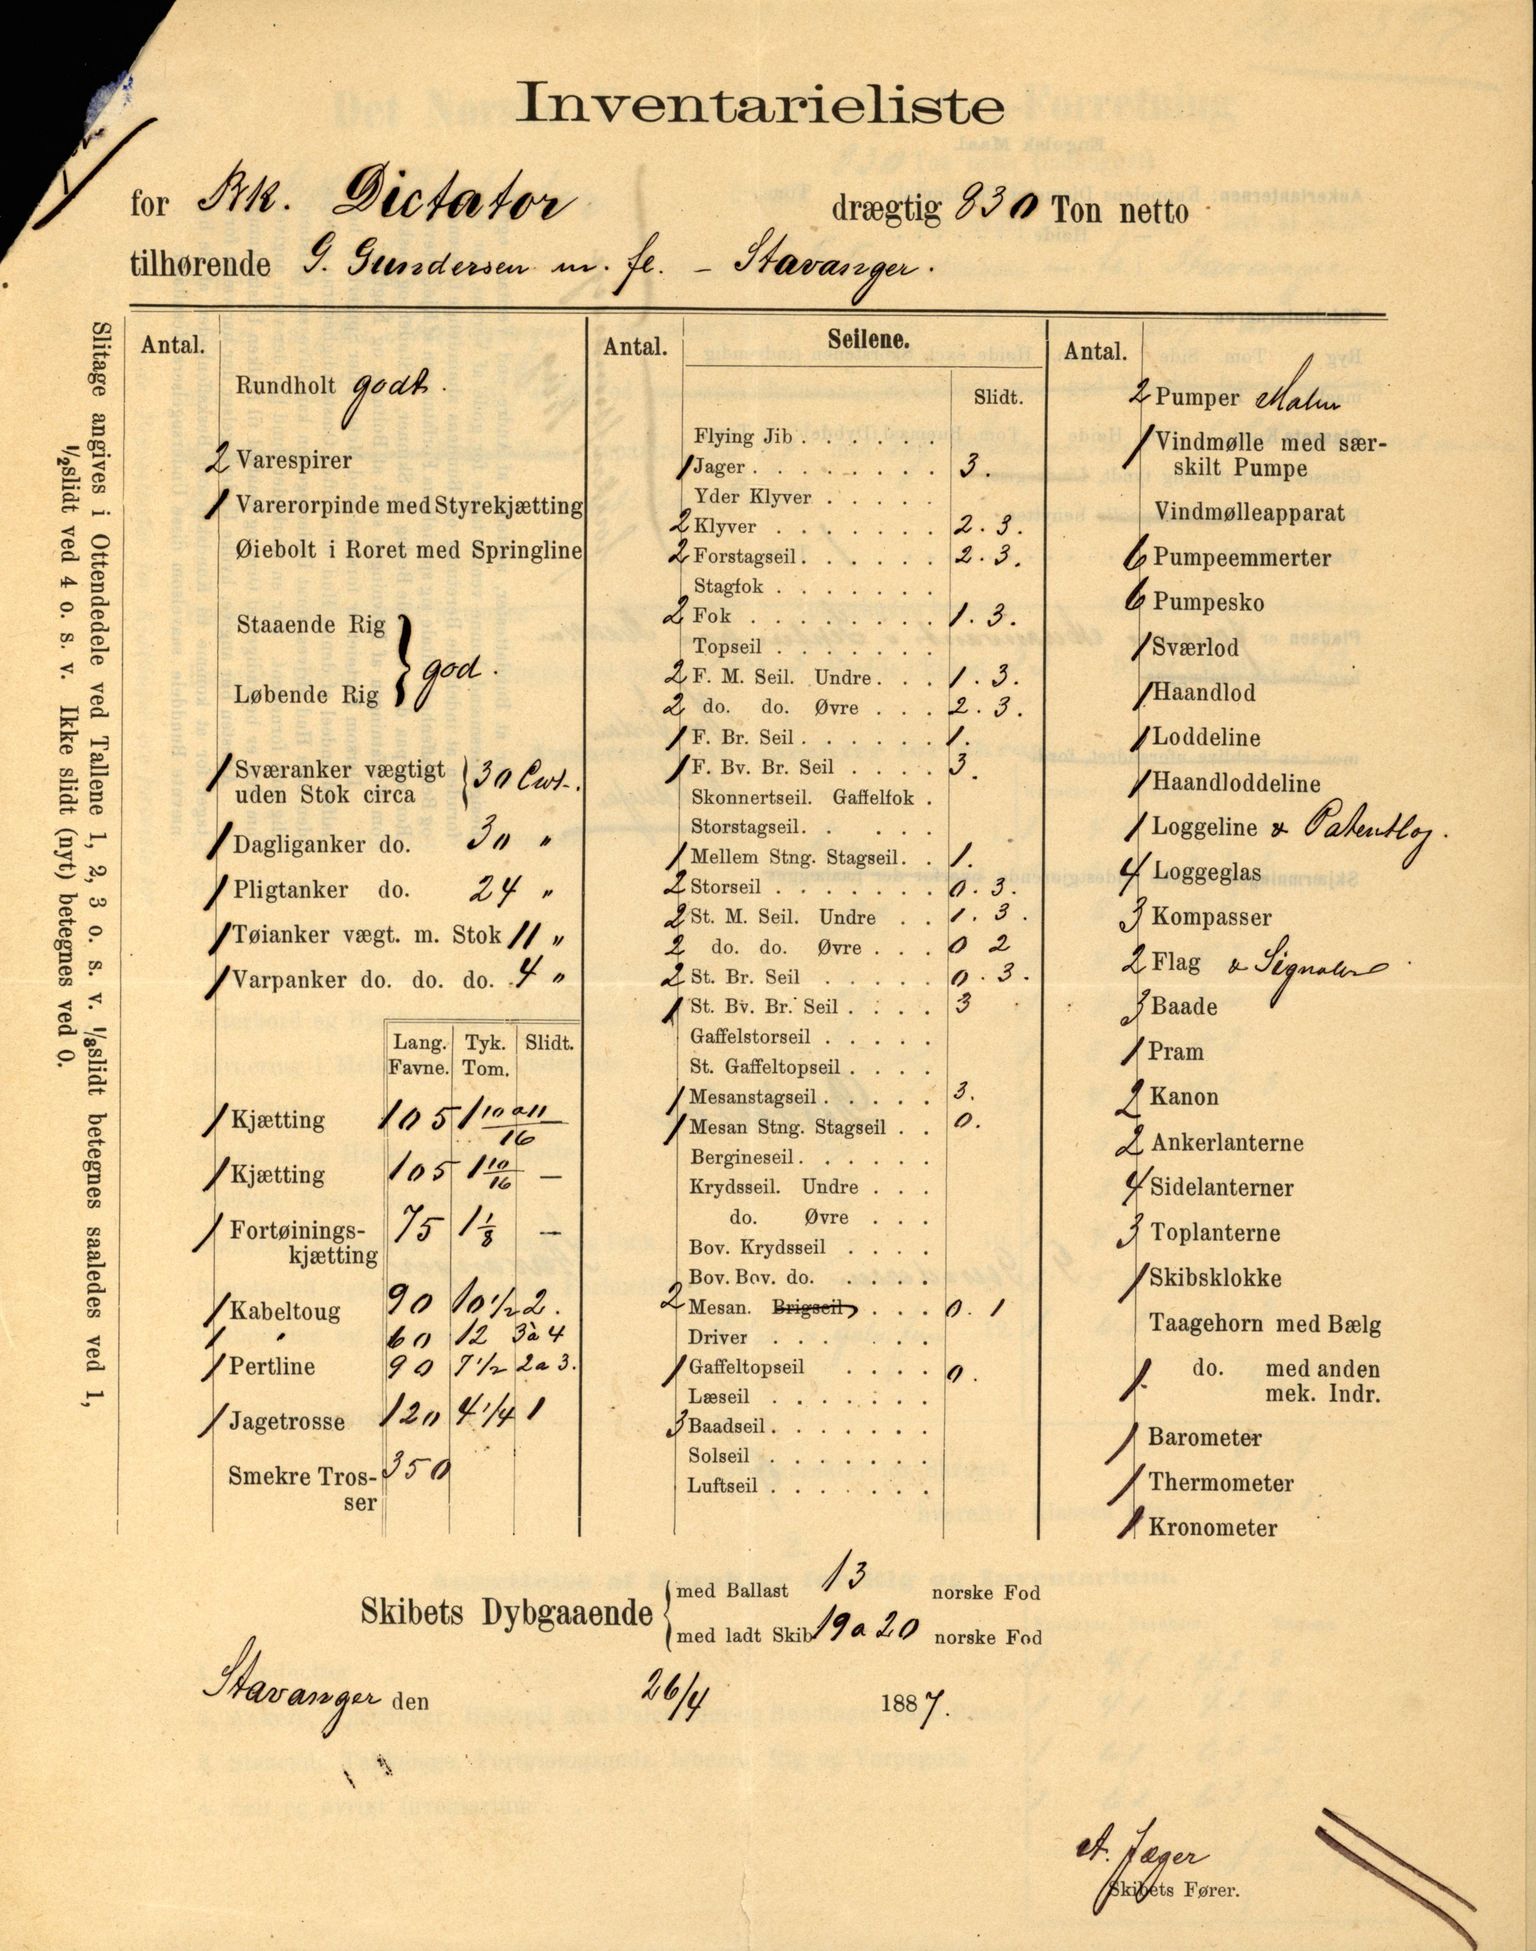 Inventarieliste
for Bk. Dictator drægtig 830 Ton netto
tilhørende G. Gundersen m. fl. – Stavanger.
Slitage angives i Ottendedele ved Tallene 1, 2, 3 o. s. v. 1/8 slidt betegnes saaledes ved 1,
1/2 slidt ved 4 o. s. v. Ikke slidt (nyt) betegnes ved 0.
Antal.
Rundholt godt.
2 Varespirer
1 Varerorpinde med Styrekjætting
Øiebolt i Roret med Springline
Staaende Rig
Løbende Rig } god.
1 Sværanker vægtigt
uden Stok circa { 30 Cwt.
1 Dagliganker do. 30 "
1 Pligtanker do. 24 "
1 Tøianker vægt. m. Stok 11 "
1 Varpanker do. do. do. 4 "
Lang. Tyk. Slidt.
Favne. Tom.
1 Kjætting 105 1 10 a 11/16
1 Kjætting 105 1 10/16 —
1 Fortøinings-
kjætting 75 1 1/8 —
1 Kabeltoug 90 10 1/2 2.
1 " 60 12 3 à 4
1 Pertline 90 7 1/2 2 a 3.
1 Jagetrosse 120 4 1/4 1
Smekre Tros-
ser 350
Antal. Seilene.
Slidt.
Flying Jib . . . . . .
1 Jager . . . . . . . . 3.
Yder Klyver . . . . .
2 Klyver . . . . . . . 2. 3.
2 Forstagseil . . . . . . 2. 3.
Stagfok . . . . . . .
2 Fok . . . . . . . . 1. 3.
Topseil . . . . . . .
2 F. M. Seil. Undre . . . 1. 3.
2 do. do. Øvre . . . 2. 3.
1 F. Br. Seil . . . . . . 1.
1 F. Bv. Br. Seil . . . . 3.
Skonnertseil. Gaffelfok .
Storstagseil . . . . .
1 Mellem Stng. Stagseil . . 1.
2 Storseil . . . . . . . 0. 3.
2 St. M. Seil. Undre . . 1. 3.
2 do. do. Øvre . . . 0 2
2 St. Br. Seil . . . . . 0. 3.
1 St. Bv. Br. Seil . . . . 3
Gaffelstorseil . . . . .
St. Gaffeltopseil . . . .
1 Mesanstagseil . . . . . 3.
1 Mesan Stng. Stagseil . . 0.
Bergineseil . . . . . .
Krydsseil. Undre . . .
do. Øvre . . .
Bov. Krydsseil . . . .
Bov. Bov. do. . . . .
2 Mesan. Brigseil . . . 0. 1
Driver . . . . . .
1 Gaffeltopseil . . . . 0.
Læseil . . . . . . .
3 Baadseil . . . . . . .
Solseil . . . . . . .
Luftseil . . . . . . .
Antal.
2 Pumper
1 Vindmølle med sær-
skilt Pumpe
Vindmølleapparat
6 Pumpeemmerter
6 Pumpesko
1 Sværlod
1 Haandlod
1 Loddeline
1 Haandloddeline
1 Loggeline & Patentlog.
4 Loggeglas
3 Kompasser
2 Flag & Signaler
3 Baade
1 Pram
2 Kanon
2 Ankerlanterne
4 Sidelanterner
3 Toplanterne
1 Skibsklokke
Taagehorn med Bælg
1. do. med anden
mek. Indr.
1 Barometer
1 Thermometer
1 Kronometer
Skibets Dybgaaende { med Ballast 13 norske Fod
med ladt Skib 19 a 20 norske Fod
Stavanger den 26/4 1887.
A. Jæger
Skibets Fører.